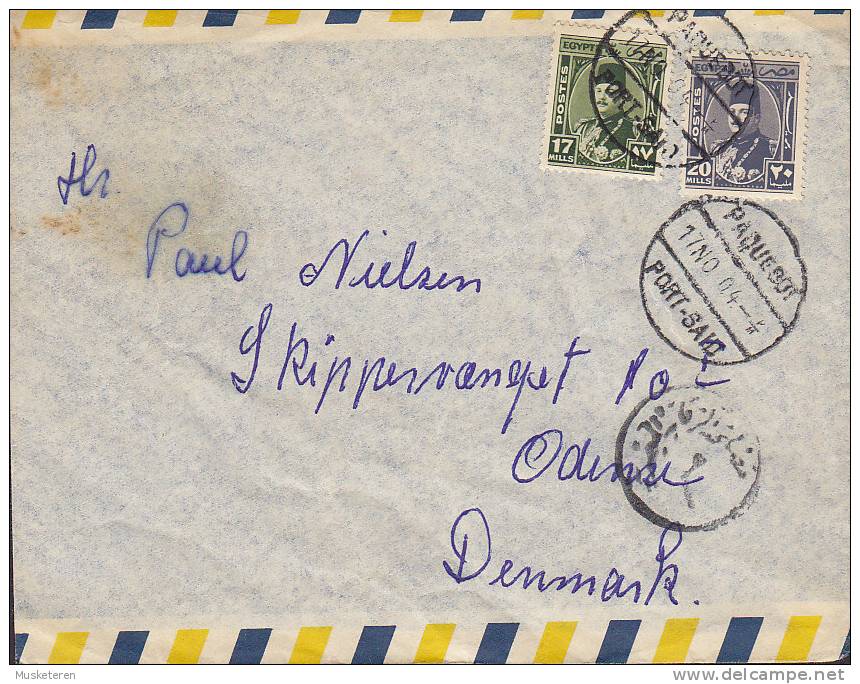 EGYPTE
POSTES
17
MILLS
١٧
EGYPTE مصر
POSTES
20
MILLS
٢٠
PAQUEBOT
17NO
PORT-SAID
PAQUEBOT
17NO 04
PORT-SAID
Hr.
Paul Nielsen
Skippervænget
Odense
Denmark.
Musketeren
delcampe.net